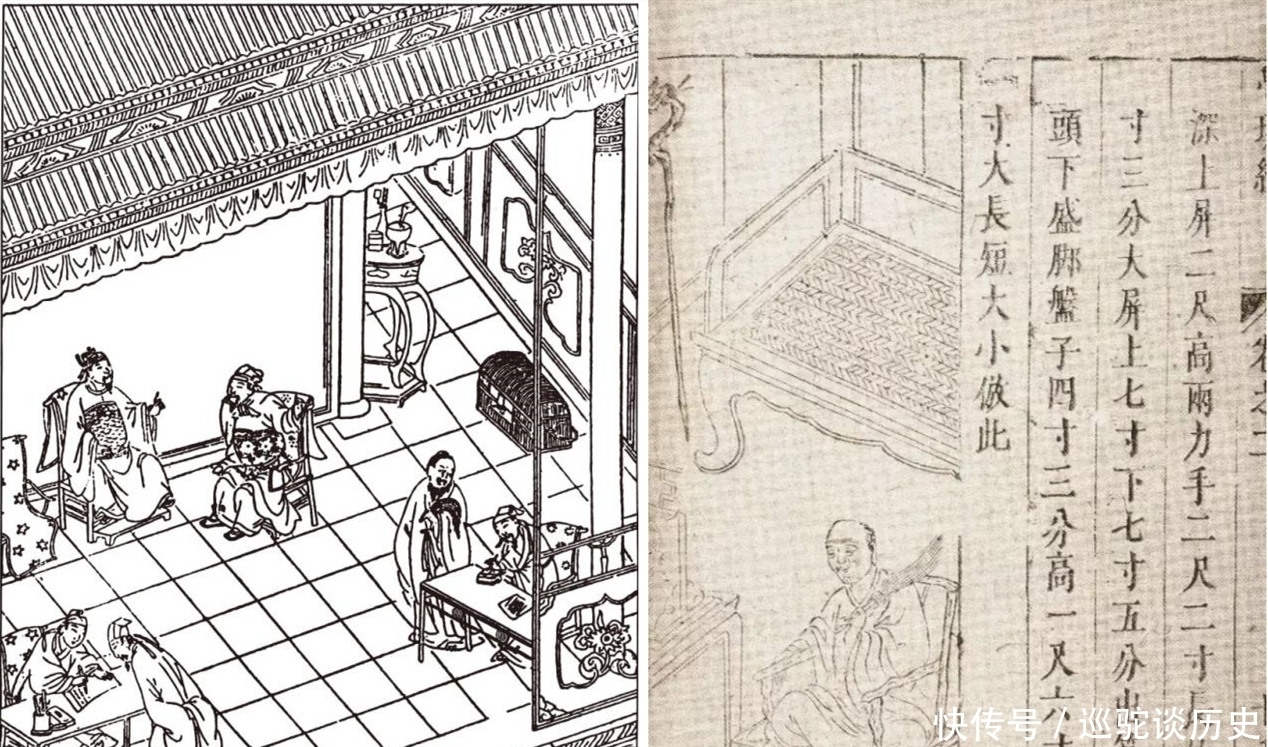 班經 卷之二
深上屏二尺高兩力手二尺二寸長
寸三分大屏上七寸下七寸五分出
頭下盛脚盤子四寸三分高一尺六寸
寸大長短大小倣此
快传号 / 巡驼谈历史